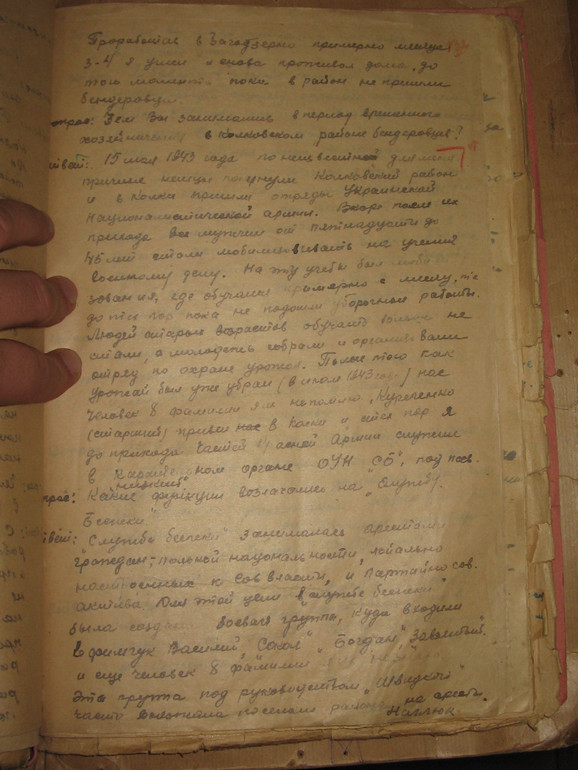 Проработав в Заготзерно примерно месяца
3-4 я ушел и снова проживал дома, до
того момента пока в район не пришли
бендеровцы.
Чем Вы занимались в период временного
хозяйничания в Колковском районе бендеровцев?
15 мая 1943 года по неизвестной для меня
причине немцы покинули Колковский район
и в Колки пришли отряды Украинской
Националистической армии. Вскоре после их
прихода все мужчин от пятнадцати до
45 лет стали мобилизовывать на учения
военному делу. На эту учебу был моби-
зован и я, где обучался примерно с месяц, т.е
до тех пор пока не подошли уборочные работы.
Людей старых возрастов обучать больше не
стали, а молодежь собрали и организовали
отряд по охране урожая. После того как
урожай был уже убран (в июле 1943 года) нас
человек 8 фамилии я не помню, Кузьменко
(старший) привел нас в Колки и с тех пор я
до прихода частей Красной Армии служил
в карательном органе ОУН "СБ", под псев.
Какие функции возлагались на "Службу
Безпеки"
"Служба безпеки" занималась арестами
граждан польской национальности, лояльно
настроенных к сов власти, и партийно сов.
актива. Для этой цели в "службе безпеки"
была создана боевая группа, куда входили
Ефимчук Василий, "Сокол", "Богдан",
и еще человек 8 фамилии
Эта группа под руководством "Швидкого"
часто выезжала по селам района на арест.